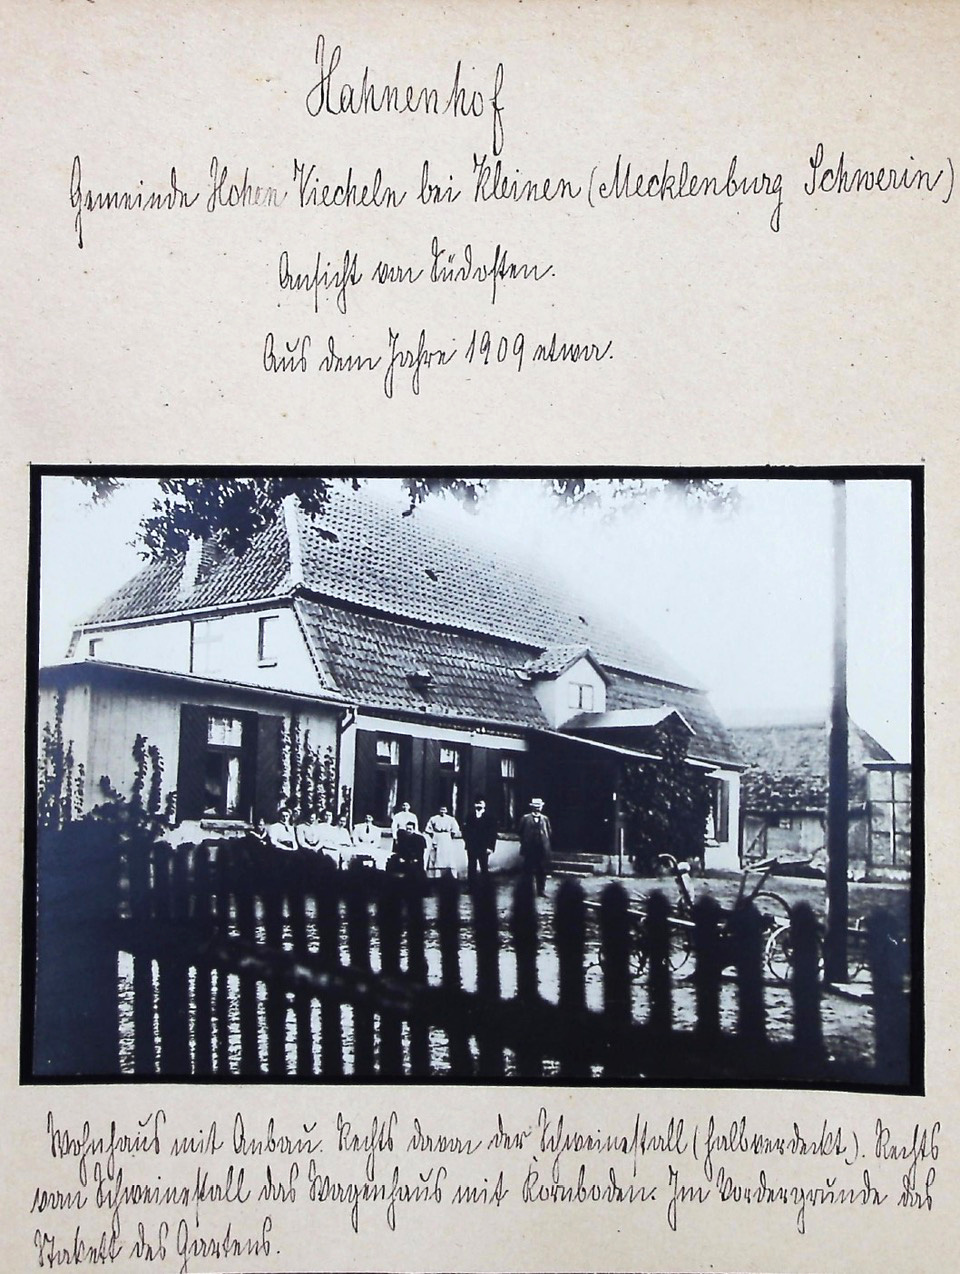 Hahnenhof
Gemeinde Hohen Viecheln bei Kleinen (Mecklenburg Schwerin)
Ansicht von Südosten.
Aus dem Jahre 1909 etwa.
Wohnhaus mit Anbau. Rechts davon der Schweinestall (halbverdeckt). Rechts
vom Schweinestall das Wagenhaus mit Kornboden. Im Vordergrunde das
Stakett des Gartens.